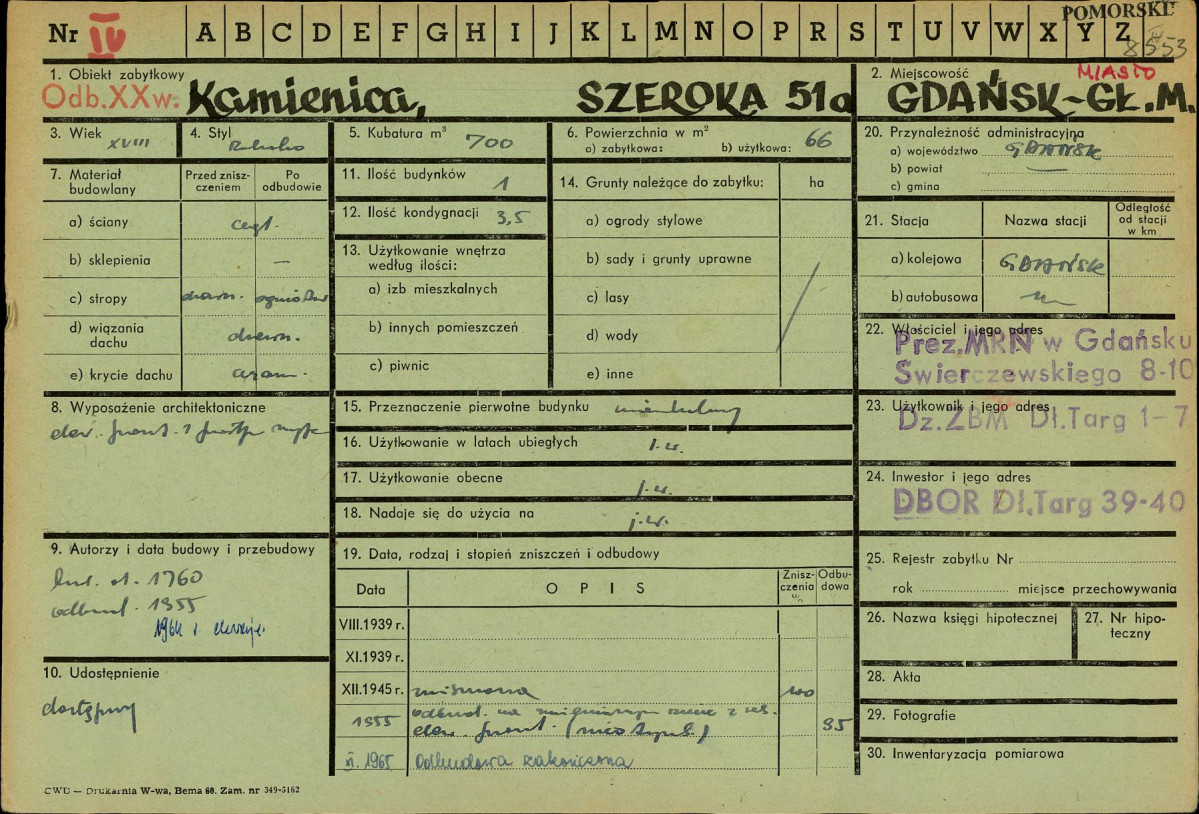 Nr IV A B C D E F G H I J K L M N O P R S T U V W X Y Z
POMORSKIE
8553
1. Obiekt zabytkowy
Odb. XX w. Kamienica, SZEROKA 51a
2. Miejscowość MIASTO
GDAŃSK-GŁ.M.
3. Wiek XVIII
4. Styl
5. Kubatura m³ 700
6. Powierzchnia w m²
a) zabytkowa: b) użytkowa: 66
7. Materiał budowlany
Przed zniszczeniem
Po odbudowie
a) ściany cegł.
b) sklepienia —
c) stropy
d) wiązania dachu drewn.
e) krycie dachu
8. Wyposażenie architektoniczne
9. Autorzy i data budowy i przebudowy
1760
odbud. 1955
1964 r.
10. Udostępnienie
dostępny
11. Ilość budynków 1
12. Ilość kondygnacji 3,5
13. Użytkowanie wnętrza według ilości:
a) izb mieszkalnych
b) innych pomieszczeń
c) piwnic
14. Grunty należące do zabytku: ha
a) ogrody stylowe
b) sady i grunty uprawne
c) lasy
d) wody
e) inne
15. Przeznaczenie pierwotne budynku mieszkalny
16. Użytkowanie w latach ubiegłych j.w.
17. Użytkowanie obecne j.w.
18. Nadaje się do użycia na j.w.
19. Data, rodzaj i stopień zniszczeń i odbudowy
Data OPIS Zniszczenia % Odbudowa
VIII.1939 r.
XI.1939 r.
XII.1945 r. zniszczona 100
1955 odbud. na zmienionym rzucie z
front. 95
XI. 1965 Odbudowa zakończona
20. Przynależność administracyjna
a) województwo GDAŃSK
b) powiat —
c) gmina
21. Stacja Nazwa stacji Odległość od stacji w km
a) kolejowa GDAŃSK
b) autobusowa
22. Właściciel i jego adres
Prez.MRN w Gdańsku
Świerczewskiego 8-10
23. Użytkownik i jego adres
Dz.ZBM Dł.Targ 1-7
24. Inwestor i jego adres
DBOR Dł.Targ 39-40
25. Rejestr zabytku Nr
rok miejsce przechowywania
26. Nazwa księgi hipotecznej
27. Nr hipoteczny
28. Akta
29. Fotografie
30. Inwentaryzacja pomiarowa
CWD — Drukarnia W-wa, Bema 60. Zam. nr 349-5162